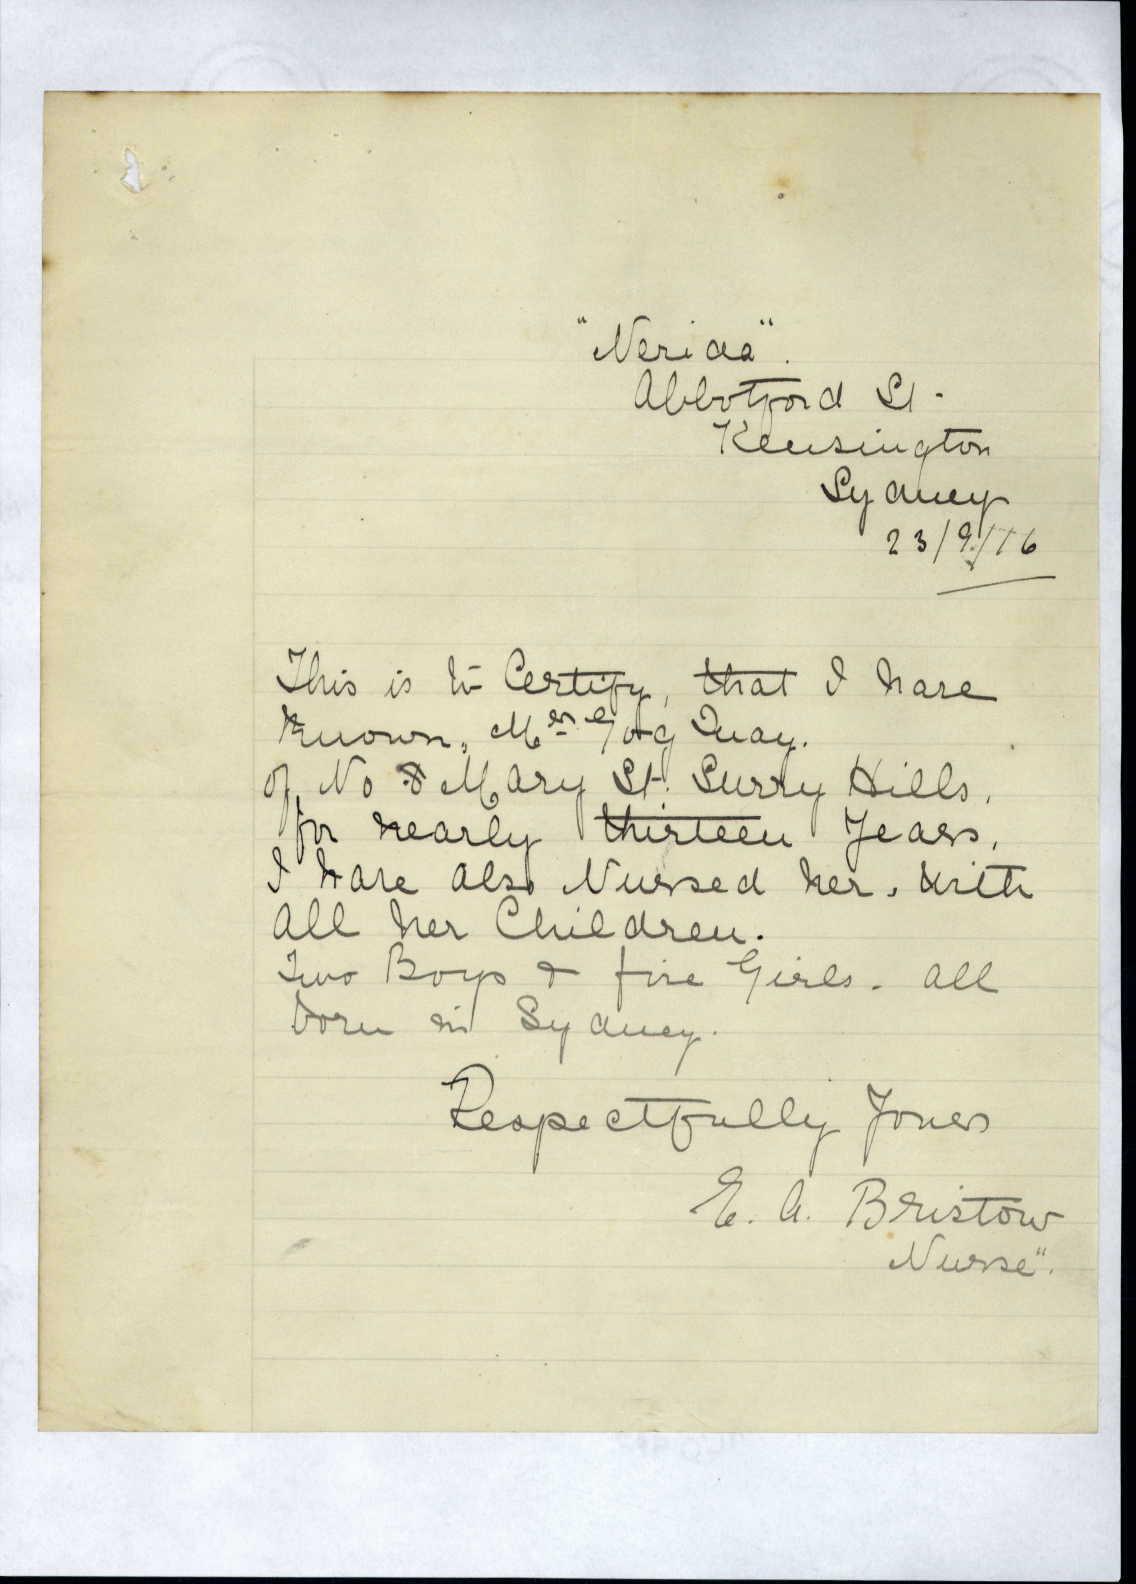 "Nerida".
Abbotford St.
Kensington
Sydney
23/9/16
This is to Certify, that I have
Known, Mrs Gog Quay.
of No 8 Mary St. Surry Hills.
for nearly thirteen Years.
I have also Nursed her, with
all her Children.
Two Boys & five Girls. all
born in Sydney.
Respectfully Yours
E. A. Bristow
Nurse".